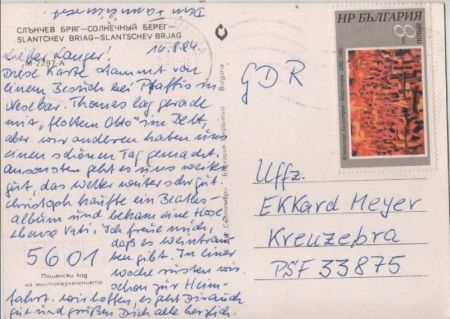 СЛЪНЧЕВ БРЯГ–СОЛНЕЧНЫЙ БЕРЕГ–
SLANTCHEV BRIAG–SLANTSCHEV BRJAG
14.8.84.
M-2297-A
Diese Karte stammt von
einem Besuch bei
Nesebar. Thomas lag gerade
mit „flottem Otto" im Bett,
aber wir anderen haben uns
einen schönen Tag gemacht.
Ansonsten geht es uns weiter
gut, das Wetter weiter sehr gut.
Christoph kaufte ein Beatles-
album und bekam eine Hose
ebenso Vati. Ich freue mich,
daß es Weintrauben
gibt. In einer
Woche rüsten wir
schon zur Heim-
fahrt. Wir hoffen, es geht Dir auch
gut und grüßen Dich alle herzlich.
5601
Пощенски код
на местоназначението
България
Bulgaria
НР БЪЛГАРИЯ
8
GDR
Uffz.
Ekkard Meyer
Kreuzebra
PSF 33875